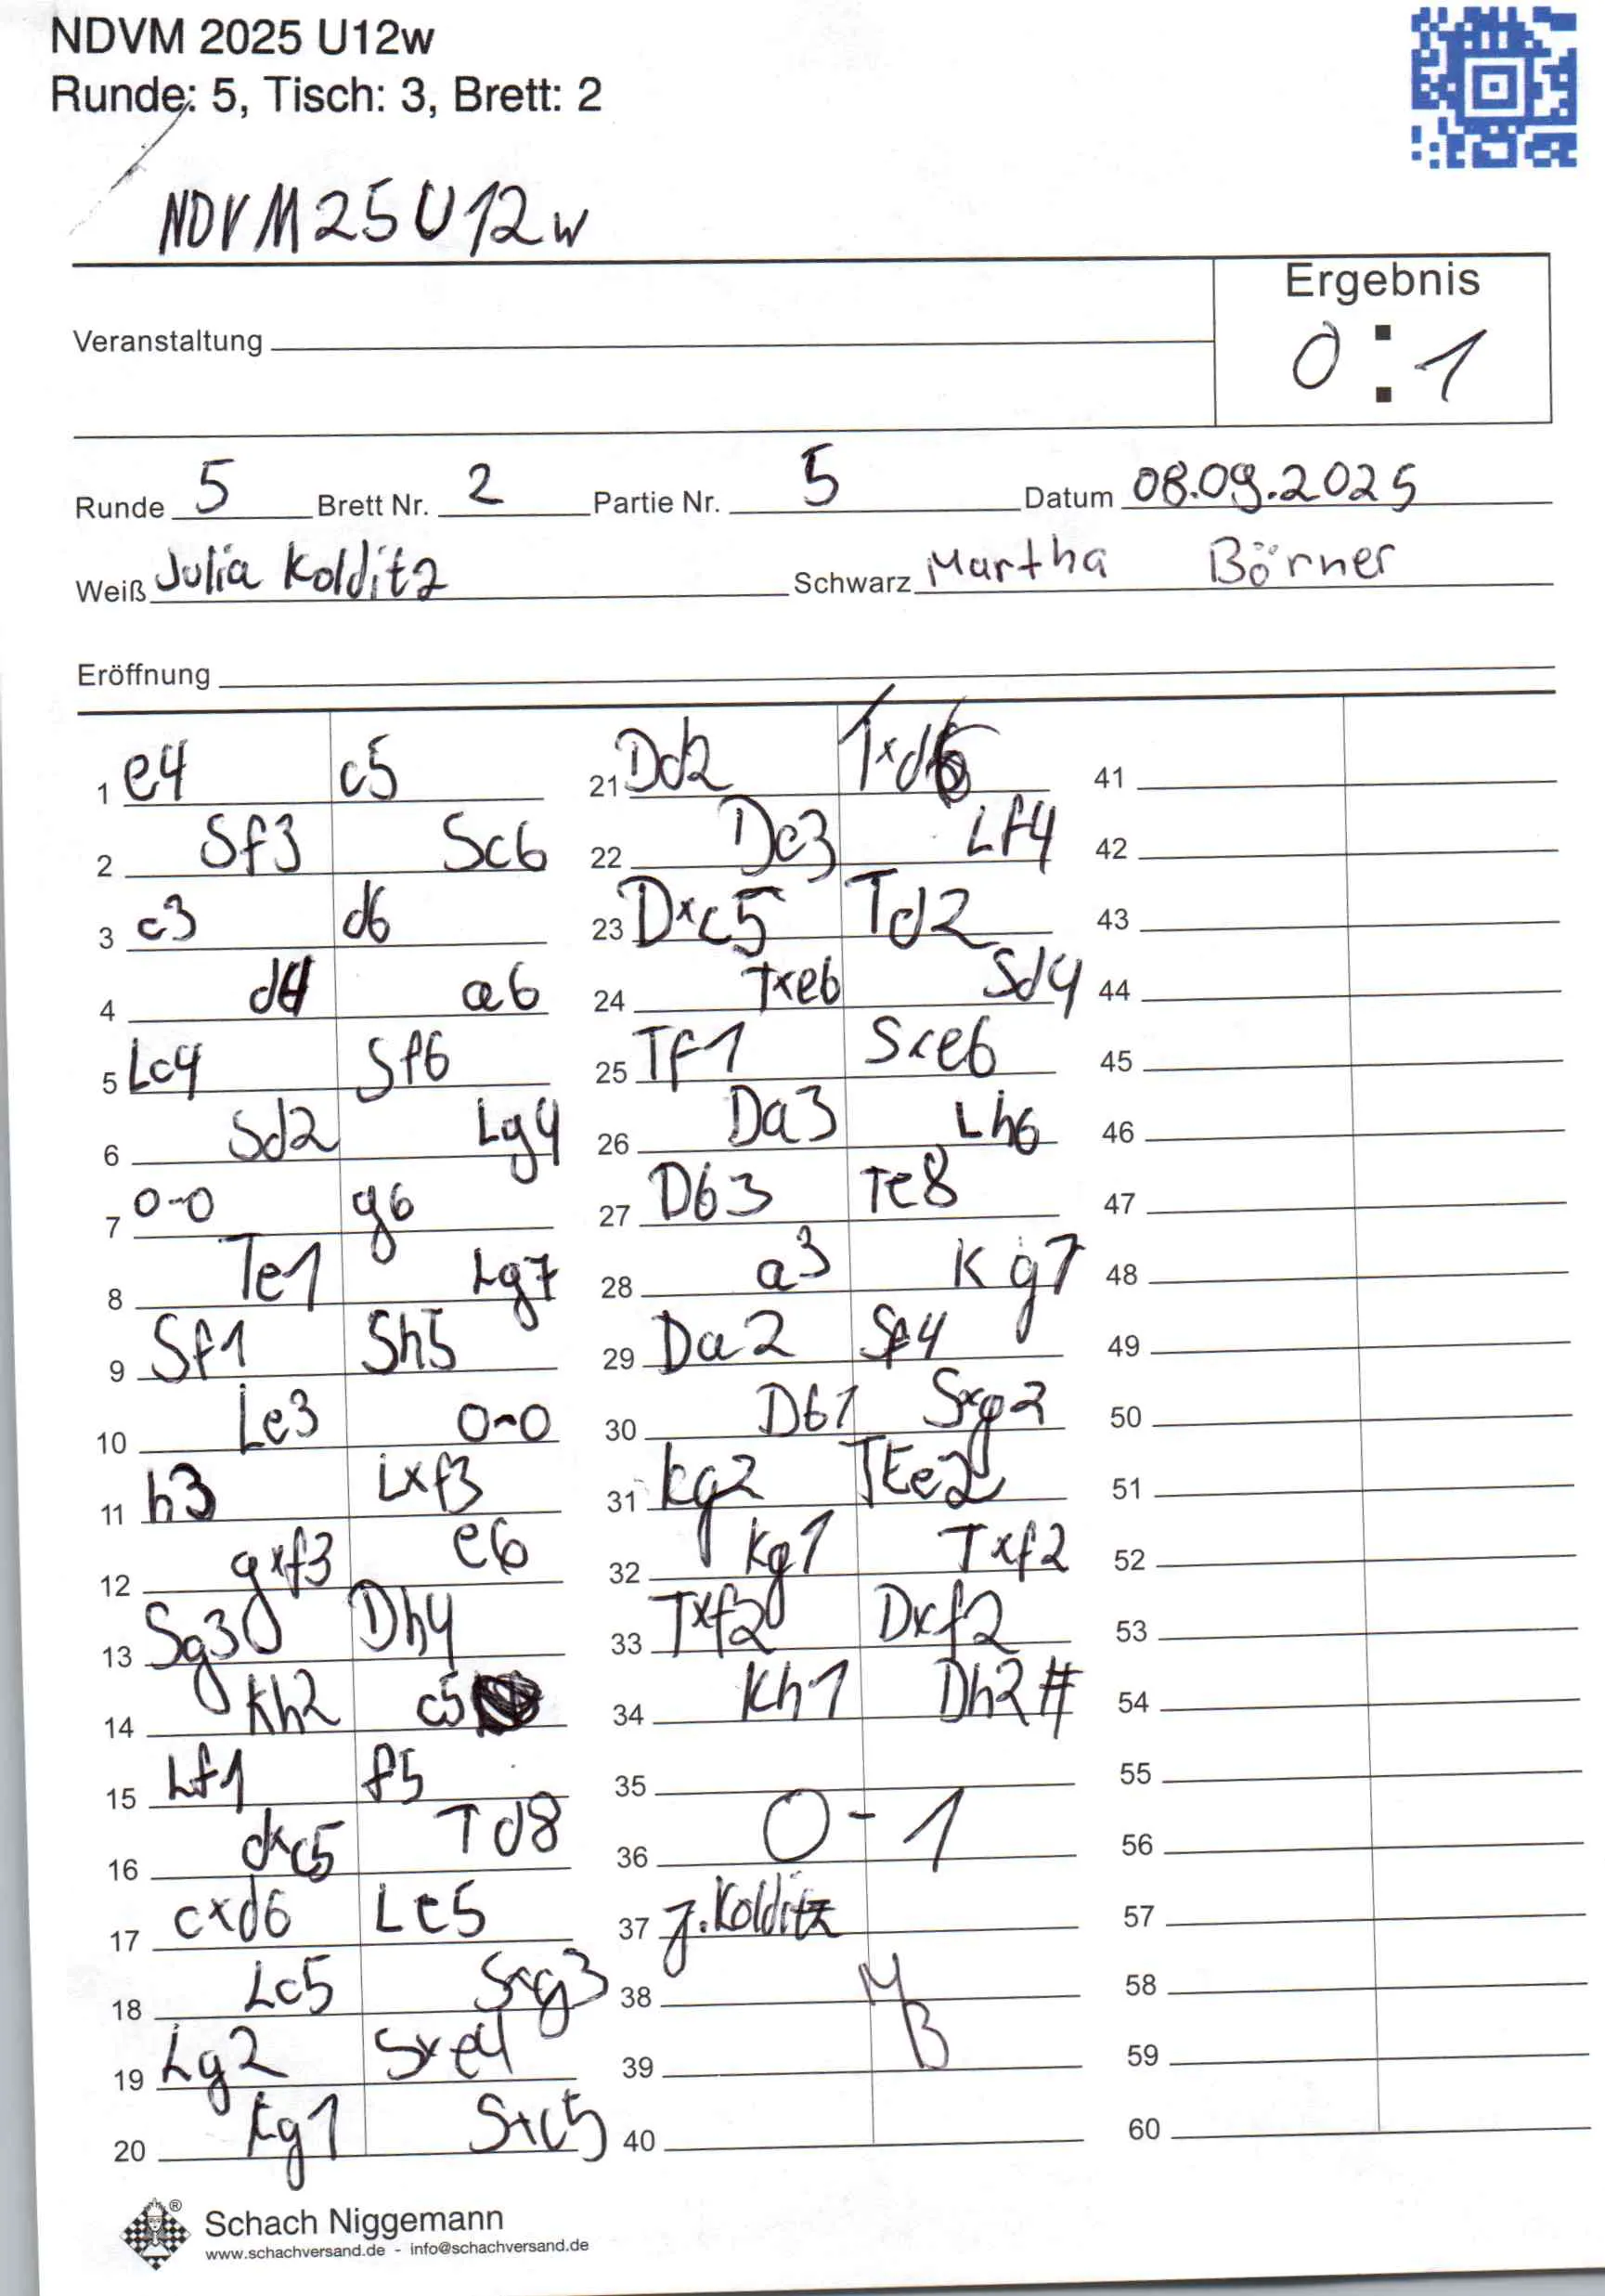 NDVM 2025 U12w
Runde: 5, Tisch: 3, Brett: 2
NDVM25U12w
Ergebnis
0 : 1
Veranstaltung
Runde 5 Brett Nr. 2 Partie Nr. 5 Datum 08.09.2025
Weiß Julia Kolditz Schwarz Martha Börner
Eröffnung
1 e4 c5
2 Sf3 Sc6
3 c3 d6
4 d4 a6
5 Lc4 Sf6
6 Sd2 Lg4
7 0-0 g6
8 Te1 Lg7
9 Sf1 Sh5
10 Le3 0-0
11 h3 Lxf3
12 gxf3 e6
13 Sg3 Dh4
14 Kh2 c5
15 Lf1 f5
16 dxc5 Td8
17 cxd6 Le5
18 Lc5 Sxg3
19 Lg2 Sxe4
20 Kg1 Sxc5
21 Dd2 Txd6
22 De3 Lf4
23 Dxc5 Td2
24 Txe6 Sd4
25 Tf1 Sxe6
26 Da3 Lh6
27 Db3 Te8
28 a3 Kg7
29 Da2 Sf4
30 Db1 Sxg2
31 kg2 TEe2
32 Kg1 Txf2
33 Txf2 Dxf2
34 Kh1 Dh2#
35
36 0-1
37 J. Kolditz
38 MB
39
40
41
42
43
44
45
46
47
48
49
50
51
52
53
54
55
56
57
58
59
60
Schach Niggemann
www.schachversand.de - info@schachversand.de